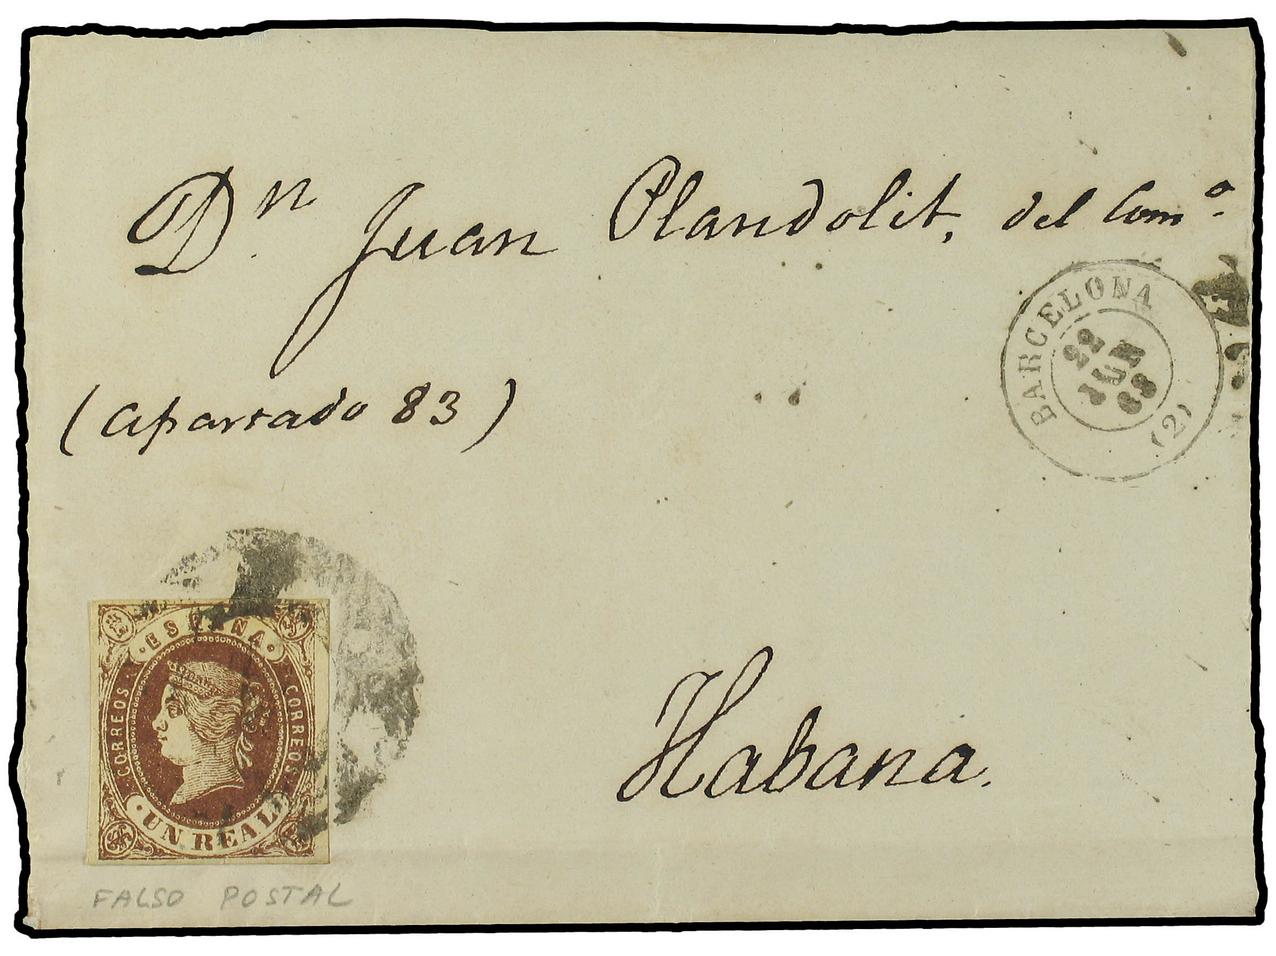 Dn. Juan Plandolit, del Comº.
BARCELONA
22
JUN
68
(2)
(apartado 83)
ESPAÑA
CORREOS
CORREOS
UN REAL
Habana.
FALSO POSTAL